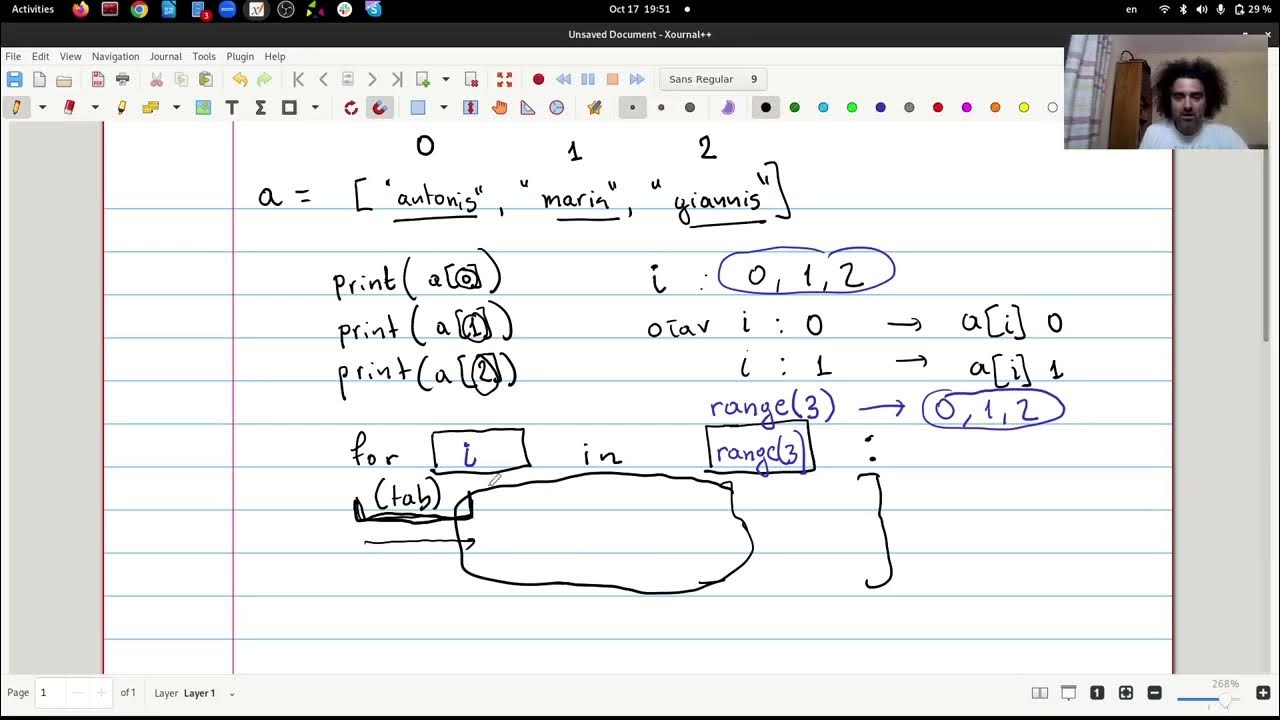 Activities
Oct 17 19:51
en
29 %
Unsaved Document - Xournal++
File Edit View Navigation Journal Tools Plugin Help
Sans Regular 9
0 1 2
a = ["antonis", "maria", "giannis"]
print( a[0])
i : 0, 1, 2
print( a[1])
οταν i : 0 → a[i] 0
print(a[2])
i : 1 → a[i] 1
range(3) → 0, 1, 2
for i in range(3) :
(tab)
Page 1 of 1 Layer Layer 1
268%